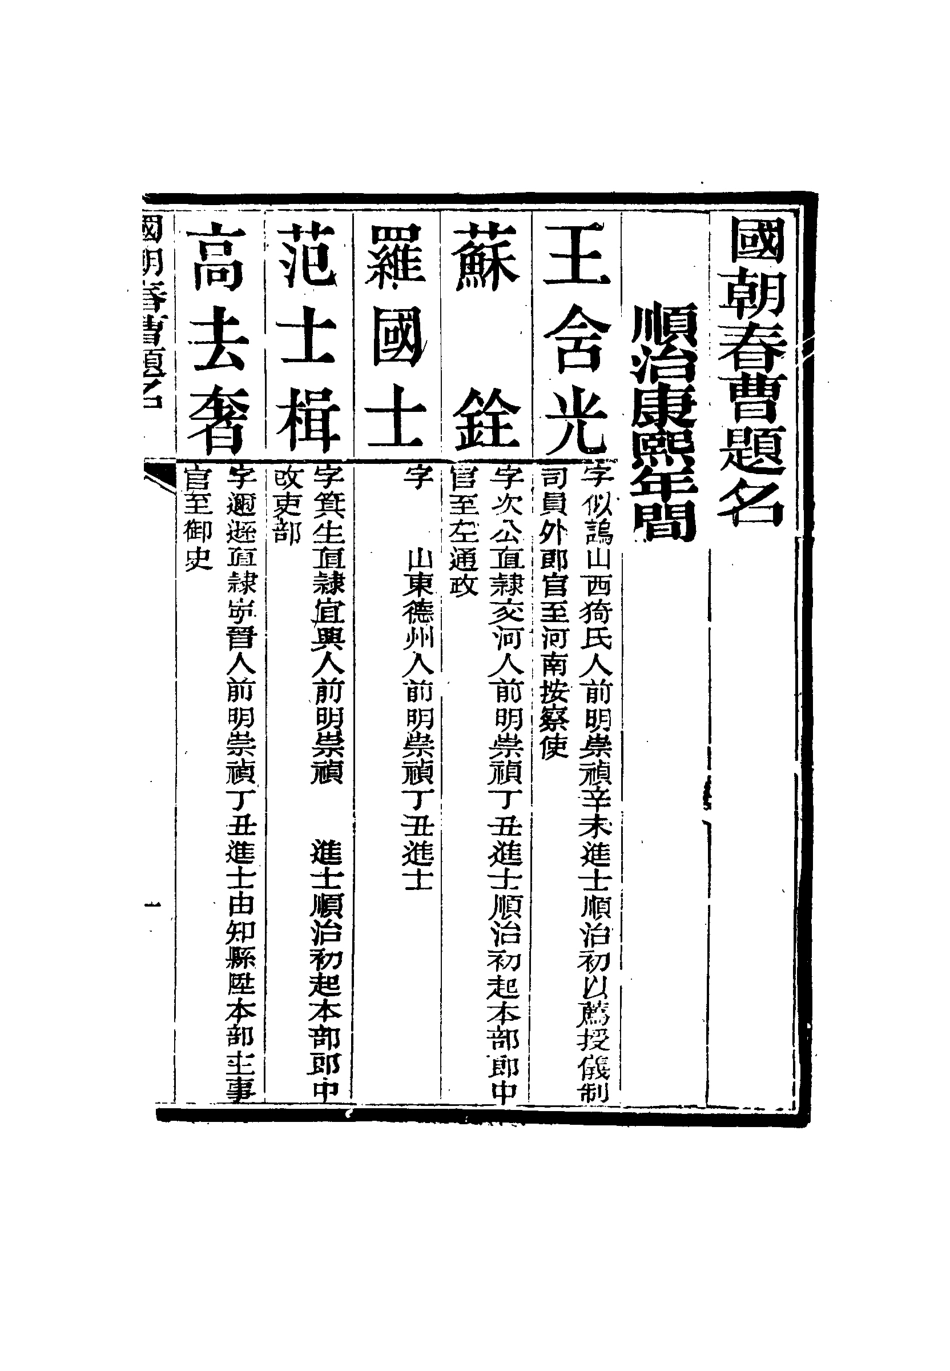 國朝春曹題名
順治康熙年間
王舍光
字似鶴山西猗氏人前明崇禎辛未進士順治初以薦授儀制
司員外郎官至河南按察使
蘇銓
字次公直隷交河人前明崇禎丁丑進士順治初起本部郎中
官至左通政
羅國士
字　山東德州人前明崇禎丁丑進士
范士楫
字箕生直隷宜興人前明崇禎　進士順治初起本部郎中
改吏部
高去奢
字邇遜直隷寕晉人前明崇禎丁丑進士由知縣陞本部主事
官至御史
國朝春曹題名
一